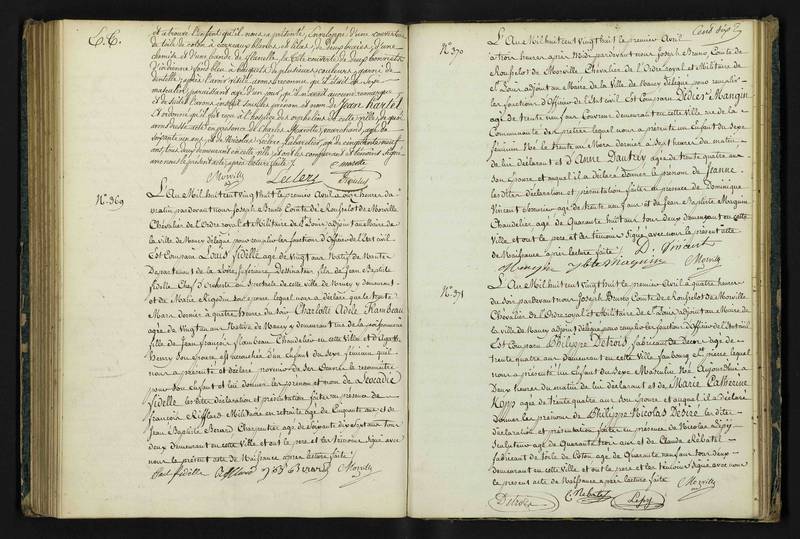 C.C.
et a trouvé l'enfant qu'il nous a présenté, enveloppé d'une couverture
de toile de coton à carreaux blancs et lilas, de deux braies, d'une
chemise et d'une bande de flanelle, la tête couverte de deux bonnets
d'indienne fond bleu à bouquets de plusieurs couleurs, garni de
dentelle; après l'avoir visité, avons reconnu qu'il était du sexe
masculin, paraissant âgé d'un jour, qu'il n'avait aucune remarque
et de suite l'avons inscrit sous les prénom et nom de Jean
et ordonné qu'il fut remis à l'hospice des orphelins de cette ville; de quoi
avons dressé acte en présence de Charles Marotte, marchand, âgé de
soixante un ans, et de Nicolas
ans, tous deux demeurant en cette ville, et ont les comparant et témoins signé
avec nous le présent acte, après lecture faite.
Morvilly
N.° 369
L'An Mil huit cent vingt huit le premier Avril à onze heures du
matin pardevant nous Joseph Bruno Comte de Rousselot de Morville
Chevalier de l'Ordre royal et Militaire de S.t Louis adjoint au Maire de
la Ville de Nancy délégué pour remplir les fonctions d'Officier de l'Etat civil
Est Comparu Louis Fidelle âgé de vingt ans Natif de Nantes
Département de la Loire inférieure, Dessinateur fils de Jean Baptiste
Fidelle Chef d'Orchestre au Spectacle de cette ville de Nancy y demeurant
et de Marie Rigodin son épouse lequel nous a déclaré que le trente
Mars dernier à quatre heures du soir Charlotte Adèle Flambeau
âgée de vingt un ans Native de Nancy y demeurant rue de la poissonnerie
fille de Jean François Flambeau Chandelier en cette Ville et d'Agathe
Henry son épouse est accouchée d'un Enfant du Sexe féminin qu'il
nous a présenté et déclaré provenir de ses Œuvres le reconnaître
pour son Enfant et lui donner les prénom et nom de Léocadie
Fidelle les dites déclaration et présentation faites en présence de
François Rifflard Militaire en retraite âgé de Cinquante ans et de
Jean Baptiste Berard Charpentier âgé de Soixante dix sept ans tous
deux demeurant en cette Ville et ont le père et les témoins signé avec
nous le présent acte de Naissance après lecture faite.
Louis fidelle Rifflard J. B. Berard Morvilly
N.° 370
L'An Mil huit cent vingt huit le premier Avril
à trois heures après Midi pardevant nous Joseph Bruno, Comte de
Rousselot de Morville Chevalier de l'Ordre royal et Militaire de
S.t Louis adjoint au Maire de la Ville de Nancy délégué pour remplir
les fonctions d'Officier de l'Etat civil Est Comparu Dédier Mangin
âgé de trente neuf ans Couvreur demeurant en cette Ville rue de la
Communauté des prêtres lequel nous a présenté un Enfant du Sexe
féminin Né le trente un Mars dernier à sept heures du matin
de lui déclarant et d'Anne Dautrey âgée de trente quatre ans
son épouse et auquel il a déclaré donner le prénom de Jeanne.
les dites déclaration et présentation faites en présence de Dominique
Vincent âgé de trente neuf ans et de Jean Baptiste Mangin
Chandelier âgé de Quarante huit ans tous deux demeurant en cette
Ville et ont le père et les témoins Signé avec nous le présent acte
de Naissance après lecture faite.
D. Vincent
Mangin J. bte Mangin Morvilly
N.° 371
L'An Mil huit cent vingt huit le premier Avril à quatre heures
du soir pardevant nous Joseph Bruno Comte de Rousselot de Morville
Chevalier de l'Ordre royal et Militaire de S.t Louis adjoint au Maire de
la ville de Nancy délégué pour remplir les fonctions d'Officier de l'Etat civil
Est Comparu Philippe Detrois fabricant de Draps âgé de
trente quatre ans demeurant en cette Ville faubourg S.t pierre lequel
nous a présenté un Enfant du Sexe Masculin Né Aujourd'hui à
Deux heures du matin de lui déclarant et de Marie Catherine
Kopp âgée de trente quatre ans son épouse et auquel il a déclaré
Donner les prénoms de Philippe Nicolas Désiré les dites
déclaration et présentation faites en présence de Nicolas Lépy
Sculpteur âgé de Quarante trois ans et de Claude Rébatel
fabricant de toile de Coton âgé de Quarante neuf ans tous deux
demeurant en cette Ville et ont le père et les témoins Signé avec nous
le présent acte de Naissance après lecture faite.
Detrois C. Rebatel Lepy Morvilly